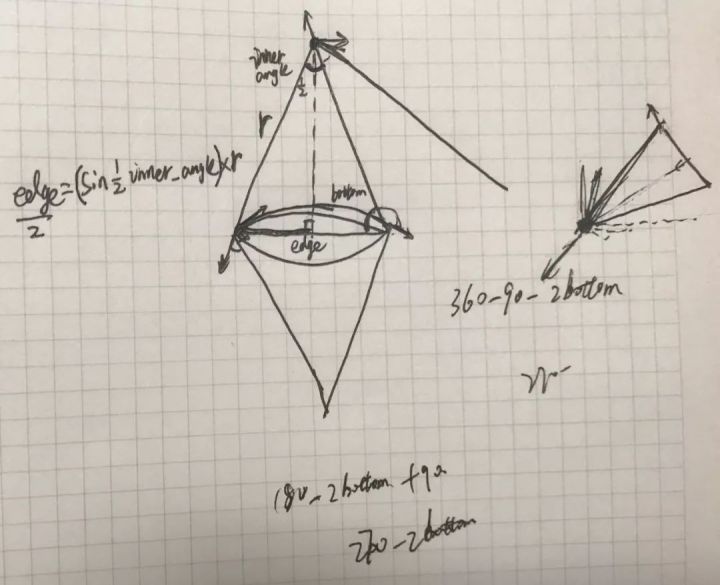 inner
angle
1/2
r
edge/2 = (sin 1/2 inner_angle) x r
bottom
edge
360-90-2bottom
180-2bottom +90
270-2bottom